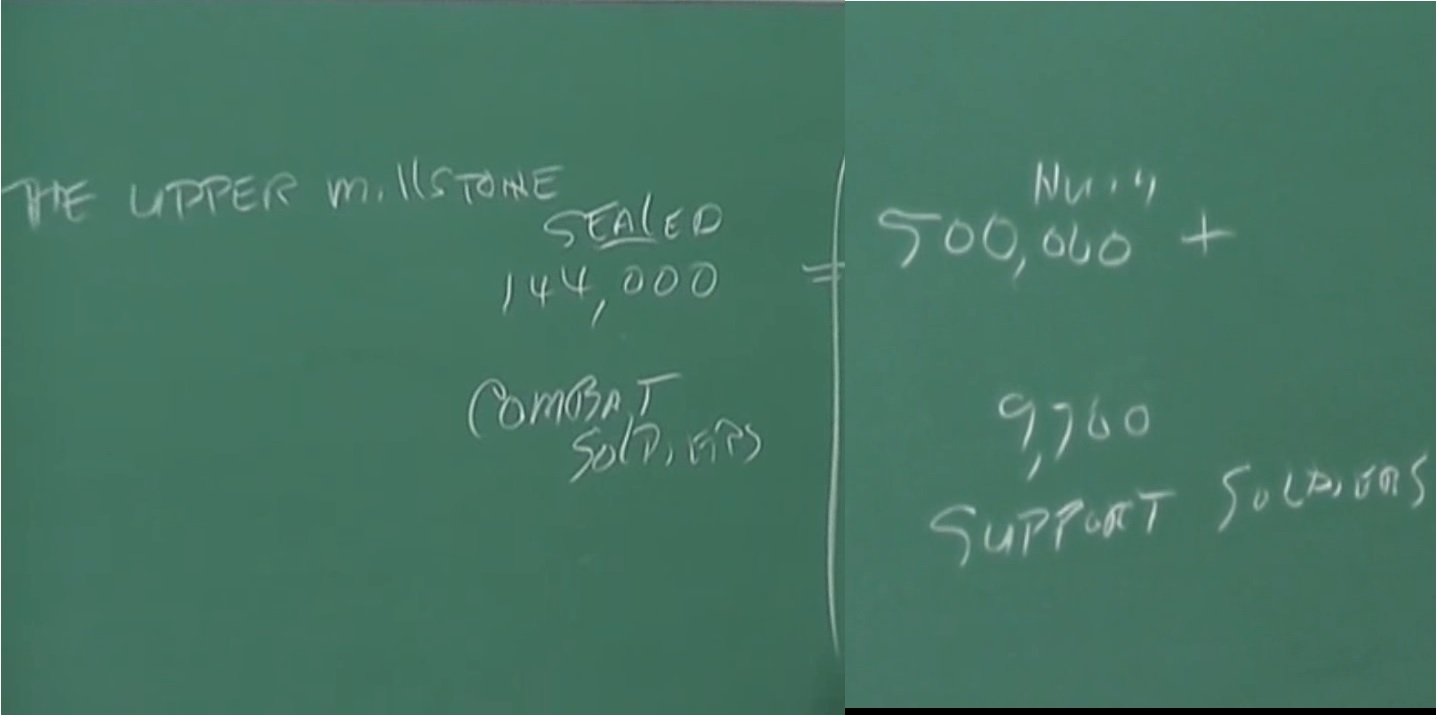 THE UPPER MillSTONE
SEAlED
144,000
=
500,000 +
COMBAT
SOlDiERS
9,760
SUPPORT SOLDiERS